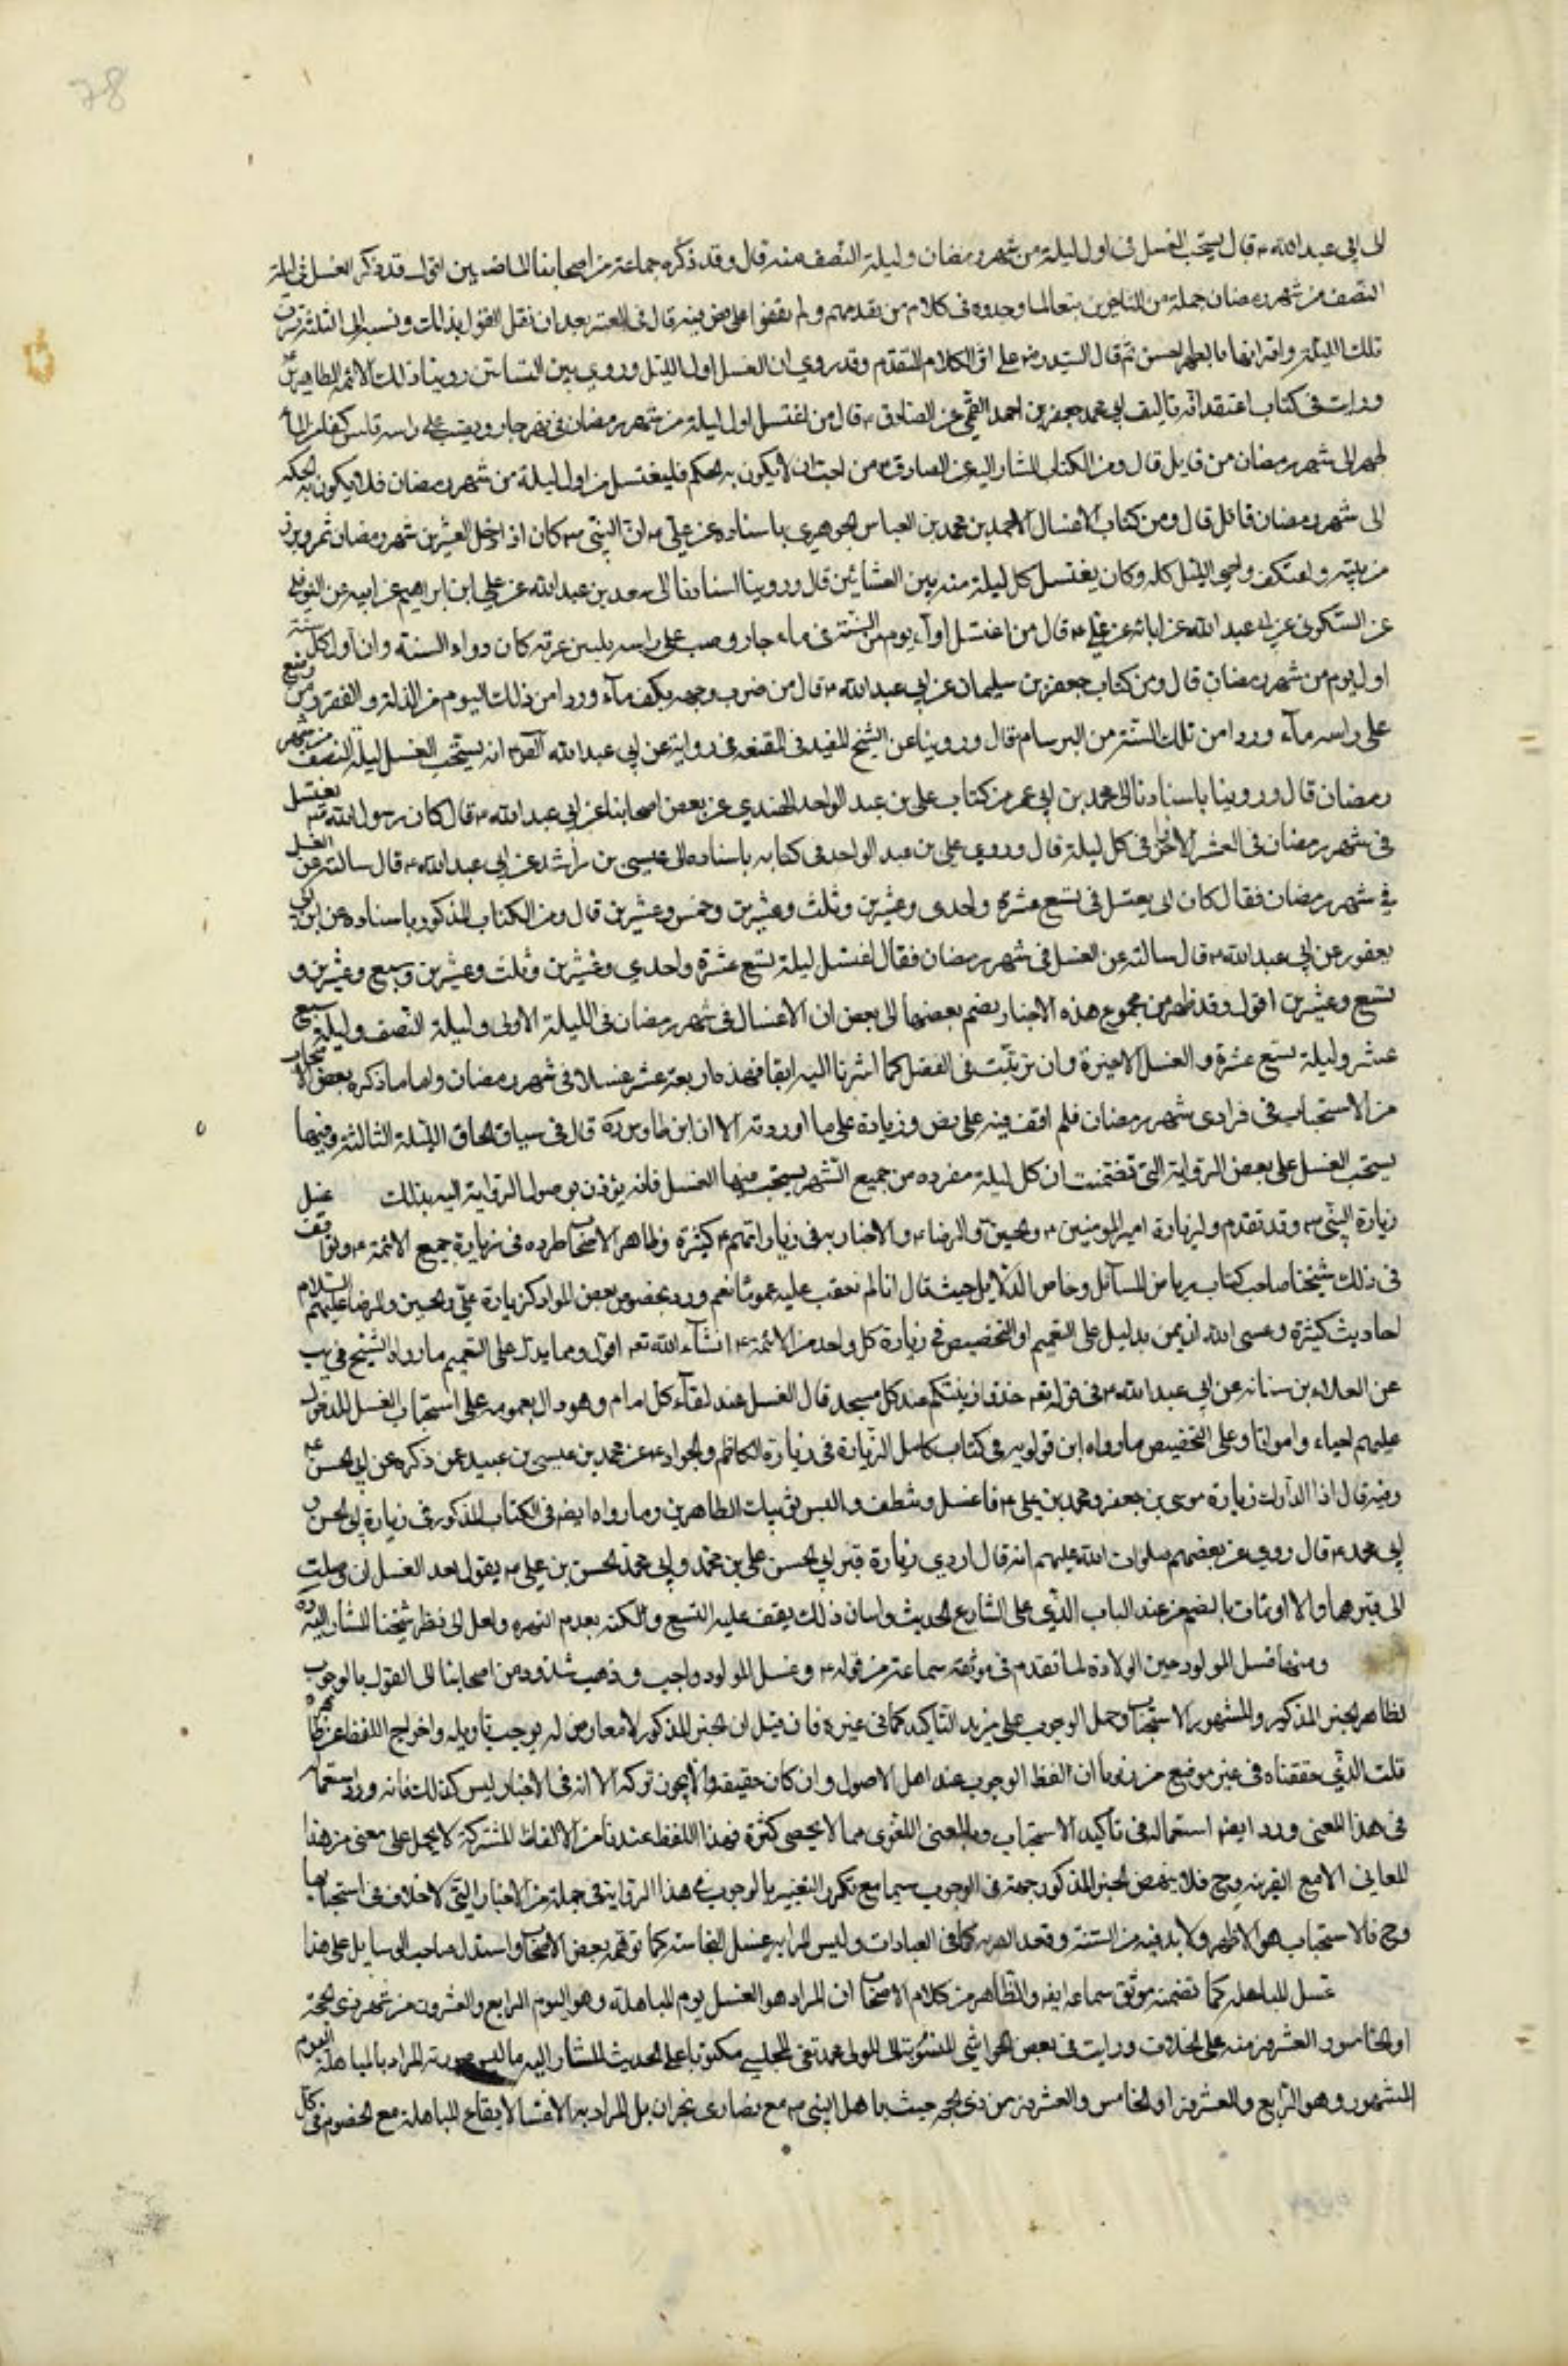 78
الى ابي عبد الله ع قال يستحب الغسل فى اول ليلة من شهر رمضان وليلة النصف منه قال وقد ذكره جماعة من اصحابنا الماضيين اقول قد ذكر الغسل فى ليلة
النصف من شهر رمضان جملة من المتأخرين تبعا لما وجدوه فى كلام من تقدمهم ولم يقفوا على نص فيه قال فى المعتبر بعد ان نقل القول بذلك ونسبه الى الثلثة شرف
تلك الليلة واقترانها ما بعلم حسن ثم قال السيد ره على اثر الكلام المتقدم وقد روي ان الغسل اول الليل وروي بين العشائين روينا ذلك عن الائمة الطاهرين
ورايت فى كتاب اعتقد انه تاليف ابي محمد جعفر بن احمد القمي عن الصادق ع قال من اغتسل اول ليلة من شهر رمضان فى نهر جار ويصب على راسه ثلثين كفا من الماء
طهر الى شهر رمضان من قابل قال ومن الكتاب المشار اليه عن الصادق ع من احب ان لا يكون به الحكه فليغتسل اول ليلة من شهر رمضان فلا يكون به الحكه
الى شهر رمضان قابل قال ومن كتاب الاغسال لاحمد بن محمد بن العباس الجوهري باسناده عن علي ع ان النبي ص كان اذا دخل العشر من شهر رمضان شمر وبرز
من بيته واعتكف واحيى الليل كله وكان يغتسل كل ليلة منه بين العشائين قال وروينا باسنادنا الى سعد بن عبد الله عن علي ابن ابراهيم عن ابيه عن النوفلي
عن السكوني عن ابي عبد الله عن ابائه عن علي ع قال من اغتسل اول يوم من السنة فى ماء جار وصب على راسه ثلثين غرفة كان دواء السنة وان اول كل سنة
اول يوم من شهر رمضان قال ومن كتاب جعفر بن سليمان عن ابي عبد الله ع قال من ضرب وجهه بكف ماء ورد امن ذلك اليوم من الذلة والفقر ومن وضع
على راسه ماء ورد امن تلك السنة من البرسام قال وروينا عن الشيخ المفيد فى المقنعة فى رواية عن ابي عبد الله ع انه يستحب الغسل ليلة النصف من شهر
رمضان قال وروينا باسنادنا الى محمد بن ابي عمير من كتاب علي بن عبد الواحد النهدي عن بعض اصحابنا عن ابي عبد الله ع قال كان رسول الله ص يغتسل
فى شهر رمضان فى العشر الاواخر فى كل ليلة قال وروي علي بن عبد الواحد فى كتابه باسناده الى عيسى بن راشد عن ابي عبد الله ع قال سالته عن الغسل
في شهر رمضان فقال كان ابي يغتسل فى تسع عشرة واحدى وعشرين وثلث وعشرين وخمس وعشرين قال ومن الكتاب المذكور باسناده عن ابن ابي
يعفور عن ابي عبد الله ع قال سالته عن الغسل فى شهر رمضان فقال اغتسل ليلة تسع عشرة واحدي وعشرين وثلث وعشرين وسبع وعشرين و
تسع وعشرين اقول وقد ظهر من مجموع هذه الاخبار بضم بعضها الى بعض ان الاغسال فى شهر رمضان فى الليلة الاولى وليلة النصف وليلة سبع
عشر وليلة تسع عشرة والعشر الاخيرة وان ترتبت فى الفضل كما اشرنا اليه انفا فهذه اربعة عشر غسلا فى شهر رمضان واما ما ذكره بعض الاصحاب
من الاستحباب فى فرادى شهر رمضان فلم اقف فيه على نص وزيادة على ما اوردته الا ان ابن طاوس ره قال فى سياق الحاق الليلة الثالثة وفيها
يستحب الغسل على بعض الرواية التى تضمنت ان كل ليلة مفرده من جميع الشهر يستحب فيها الغسل فانه يؤذن بوصول الرواية اليه بذلك غسل
زيارة النبي ص وقد تقدم ولزيارة امير المومنين ع والحسين والرضا ع والاخبار به فى زياراتهم ع كثيرة وظاهر الاصحاب طرده فى زيارة جميع الائمة ع وتوقف
فى ذلك شيخنا صاحب كتاب رياض المسائل وحياض الدلايل حيث قال انا لم نعقب عليه عموما نعم ورد بخصوص بعض المواد كزيارة علي والحسين والرضا عليهم السلام
احاديث كثيرة وعسى الله ان يمن بدليل على التعميم او التخصيص فى زيارة كل واحد من الائمة ع انشاء الله تعه اقول ومما يدل على التعميم ما رواه الشيخ في يب
عن العلاء بن سنانه عن ابي عبد الله ع فى قوله تعه خذوا زينتكم عند كل مسجد قال الغسل عند لقاء كل امام وهو دال بعمومه على استحباب الغسل للدخول
عليهم احياء وامواتا وعلى التخصيص ما رواه ابن قولويه فى كتاب كامل الزيارة فى زيارة الكاظم والجواد ع عن محمد بن عيسى بن عبيد عمن ذكره عن ابي الحسن ع
وفيه قال اذا اردت زيارة موسى بن جعفر ومحمد بن علي ع فاغتسل وتنظف والبس ثوبيك الطاهرين وما رواه ايضه فى الكتاب المذكور فى زيارة ابي الحسن و
ابي محمد ع قال روي عن بعضهم صلوات الله عليهم انه قال اذا اردت زيارة قبر ابي الحسن علي بن محمد وابي محمد الحسن بن علي ع يقول بعد الغسل ان وصلت
الى قبريهما والا اومات بالسلم من عند الباب الذي على الشارع الحديث ولسان ذلك يقف عليه التتبع ولكنه بعدم النهره ولعل الى نظر شيخنا المشار اليه ره
ومنها غسل المولود حين الولادة لما تقدم فى موثقة سماعة من قوله ع وغسل المولود واجب وذهب شذوذ من اصحابنا الى القول بالوجوب
لظاهر الخبر المذكور والمشهور الاستحباب وحمل الوجوب على مزيد التأكيد كما فى غيره فان قيل ان الخبر المذكور لا معارض له يوجب تاويله واخراج اللفظ عن ظاهره
قلت الذي حققناه فى غير موضع من زبرنا ان لفظ الوجوب عند اهل الاصول وان كان حقيقة فيما لا يجوز تركه الا انه فى الاخبار ليس كذلك فانه ورد استعماله
فى هذا المعنى وورد ايضه استعماله فى تاكيد الاستحباب وبالمعنى اللغوى مما لا يحصى كثرة فهذا اللفظ عندنا من الالفاظ المشتركة لا يحمل على معنى من هذه
المعاني الا مع القرينة وح فلا ينهض الخبر المذكور حجة فى الوجوب سيما مع تكرر التعبير بالوجوب فى هذا الرواية فى جملة من الاغسال التي لا خلاف فى استحبابها
وح فالاستحباب هو الاظهر ولا بد فيه من النية وقصد القربه كما فى العبادات وليس المراد به غسل النجاسة كما توهمه بعض الاصحاب واستدل صاحب الوسايل على هذا
غسل المباهله كما تضمنه موثق سماعه ايضه والظاهر من كلام الاصحاب ان المراد هو الغسل يوم المباهلة وهو اليوم الرابع والعشرون من شهر ذى الحجة
او الخامس والعشرون منه على الخلاف ورايت فى بعض الحواشي المنسوبة الى المولى محمد تقي المجلسي مكتوبا على الحديث المشار اليه ما ليس صورته المراد بالمباهلة اليوم
المشهور وهو الرابع والعشرون او الخامس والعشرون من ذى الحجه حيث باهل النبي ص مع نصارى نجران بل المراد به الاغتسال لايقاع المباهلة مع الخصوم فى كل